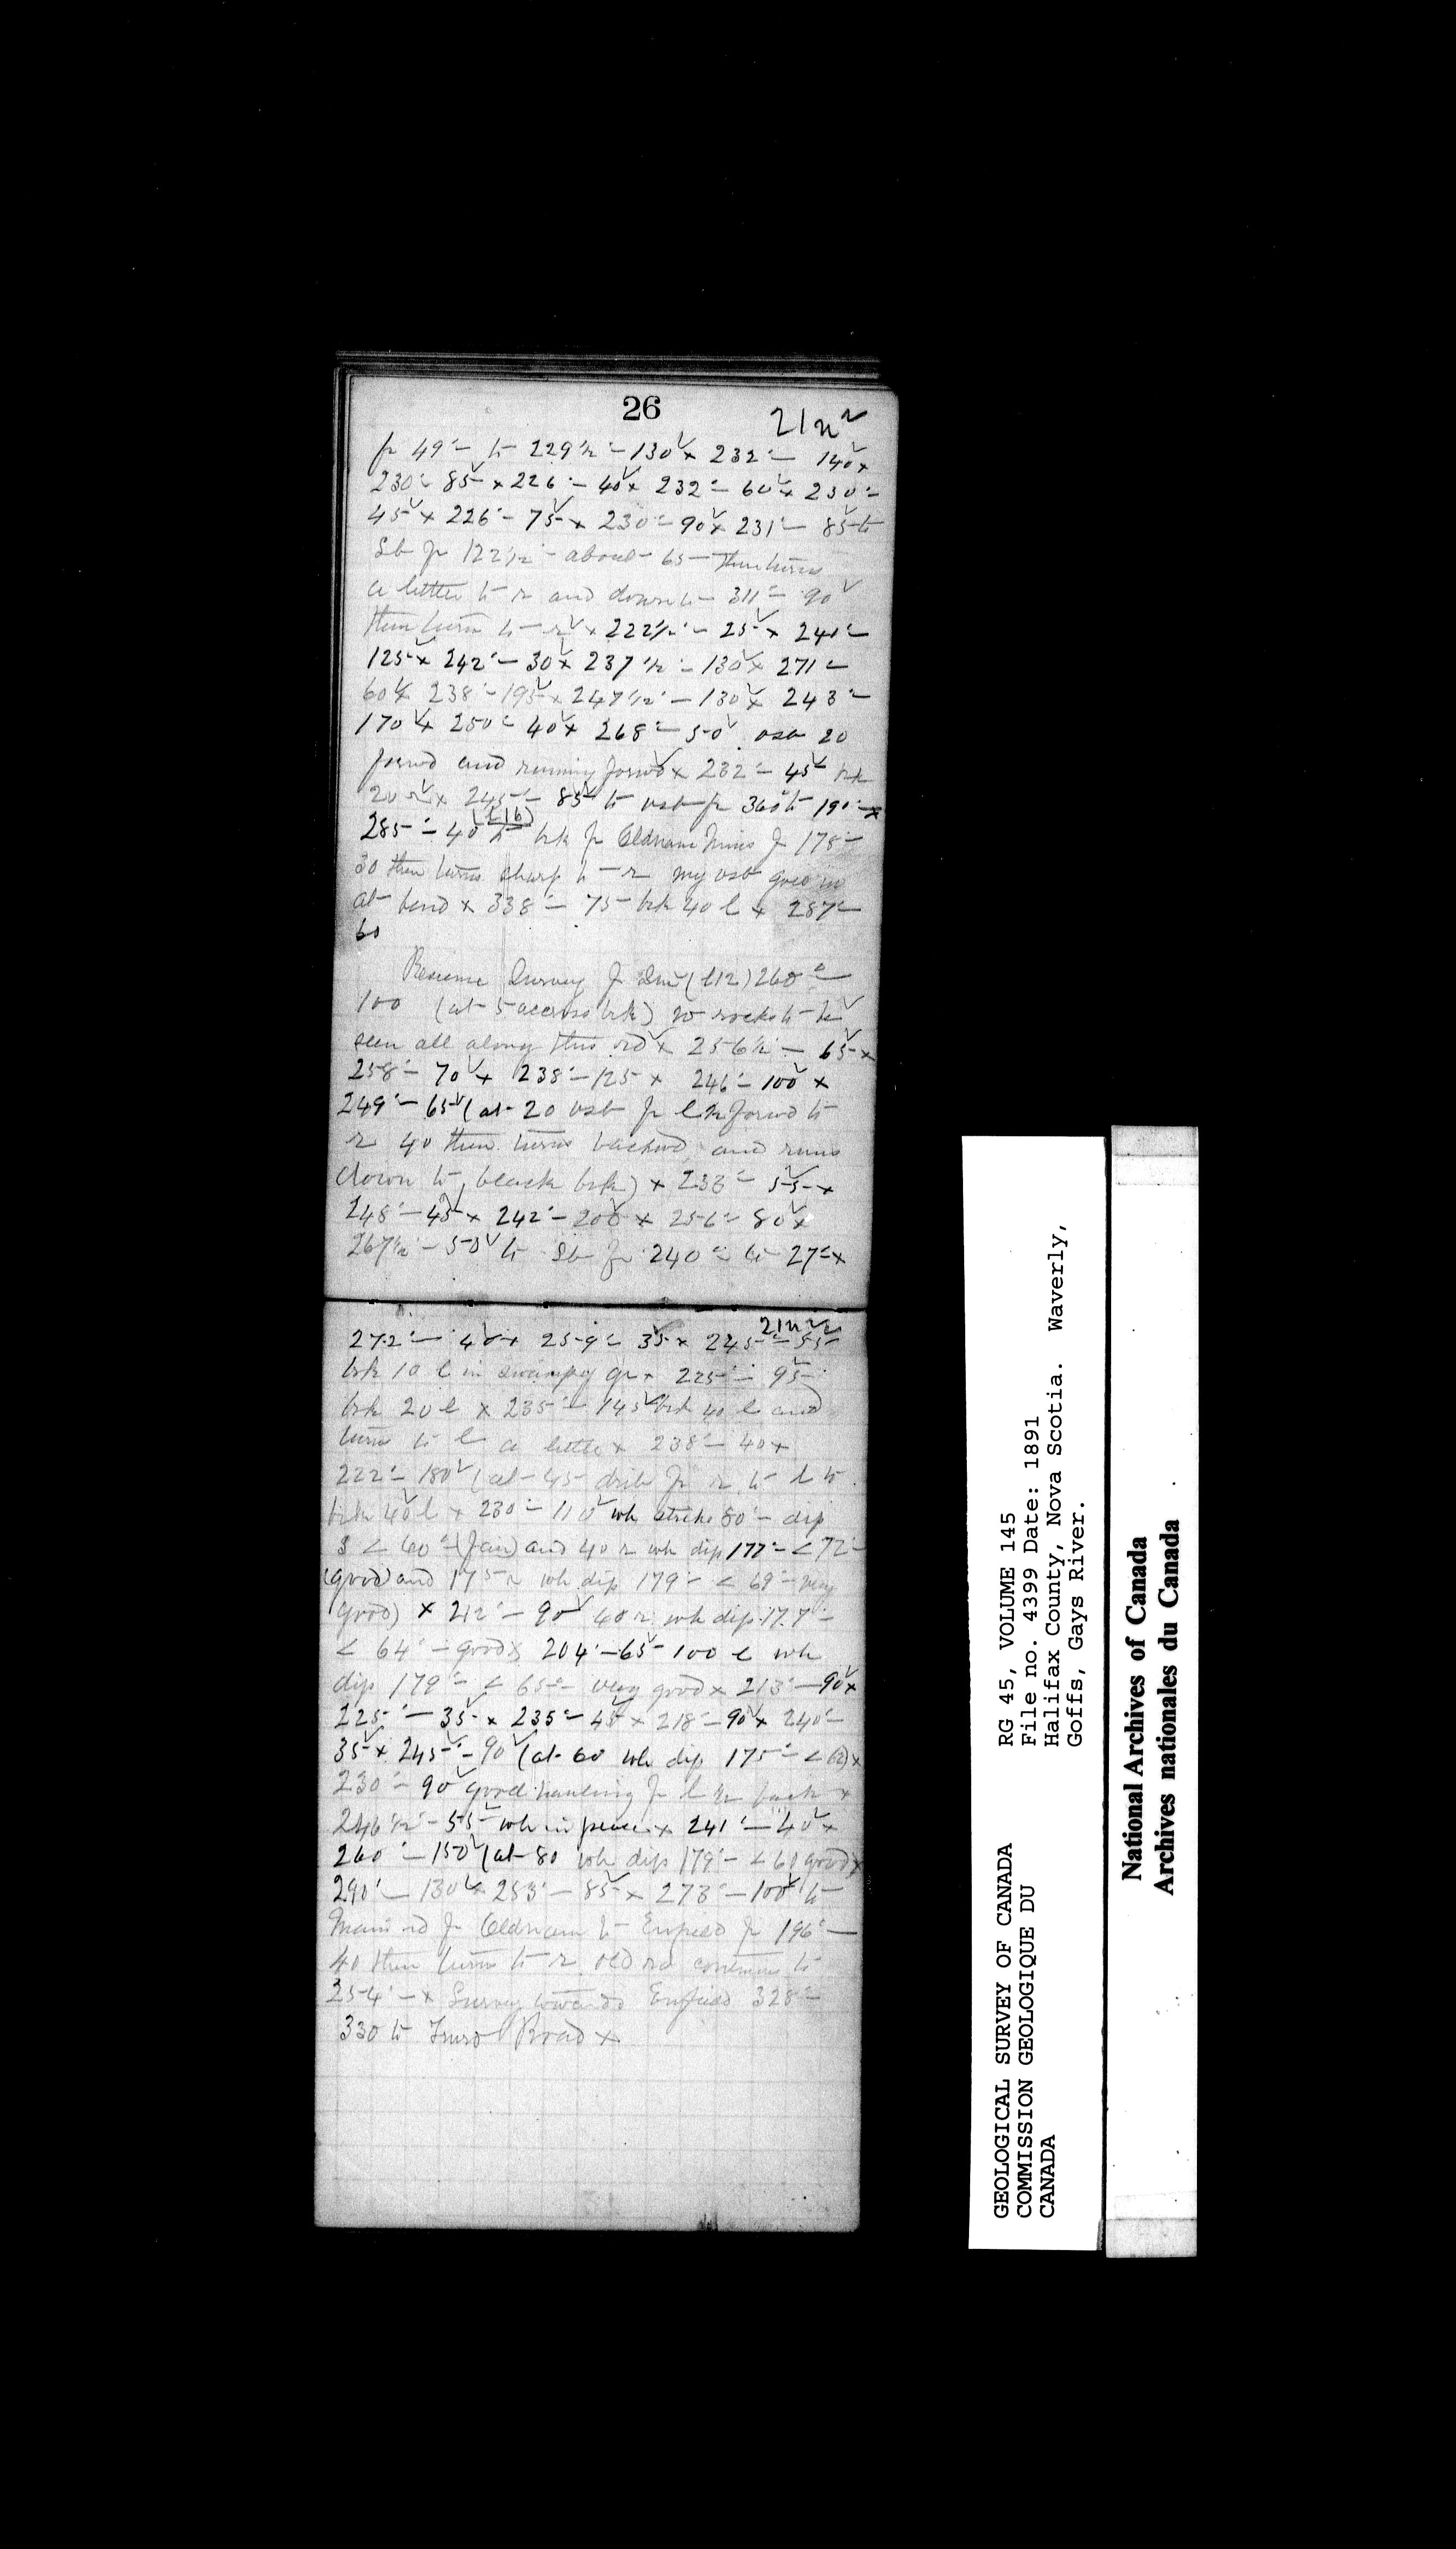 26
21 n
fr 49°– to 229½°–130 x 232°– 140 x
230°– 85 x 226°– 40 x 232°– 60 x 230°–
45 x 226°– 75 x 230°– 90 x 231°– 85 to
fr 122½°– about 65 then turns
a little to r and down to 311°– 90
then turn to r x 222½°– 25 x 240°–
125 x 242°– 30 x 237½°– 130 x 271°–
60 x 238°– 195 x 247½°– 130 x 243°–
170 x 250°– 40 x 268°– 50 20
forwd and running forwd x 232°– 45 brk
20 r x 245°– 85 to fr 360 to 190°– x
285°– 40 to brk fr Oldham Mines fr 178°–
30 then turns sharp to r my goes in
at bend x 338°– 75 brk 40 l x 287°–
60
Resume Survey fr (l12) 260°–
100 (at 5 across brk) no rocks to be
seen all along this rd x 256½°– 65 x
258°– 70 x 238°– 125 x 246°– 100 x
249°– 65 (at 20 fr l forwd to
r 40 then turns backwd and runs
down to black brk) x 233°– 55 x
248°– 45 x 242°– 200 x 256°– 80 x
267½°– 50 to fr 240°– to 27°– x
21 n
272°– 40 x 259°– 35 x 245°– 55
brk 10 l in swampy gr x 225°– 95
brk 20 l x 235°– 145 brk 40 l and
turn to l a little x 238°– 40 x
222°– 180 (at 45 fr r to l to
brk 40 l x 230°– 110 wh strike 80°– dip
S < 60°– (fair) and 40 r wh dip 177°– < 72°–
(good) and 175 r wh dip 179°– < 69°– very
good) x 212°– 90 40 r wh dip 177°–
< 64°– good x 204°– 65 100 l wh
dip 179°– < 65°– very good x 213°– 90 x
225°– 35 x 235°– 45 x 218°– 90 x 240°–
35 x 245°– 90 (at 60 wh dip 175°– < x
230°– 90 good fr l x
246½°– 55 wh in place x 241°– 40 x
260°– 150 (at 80 wh dip 179°– < 60 good) x
290°– 130 x 283°– 85 x 273°– 100 to
Main rd fr Oldham to Enfield fr 196°–
40 then turns to r old rd continues to
254°– x Survey towards Enfield 328°–
330 to Truro Road x
GEOLOGICAL SURVEY OF CANADA
COMMISSION GEOLOGIQUE DU
CANADA
RG 45, VOLUME 145
File no. 4399 Date: 1891
Halifax County, Nova Scotia. Waverly,
Goffs, Gays River.
National Archives of Canada
Archives nationales du Canada